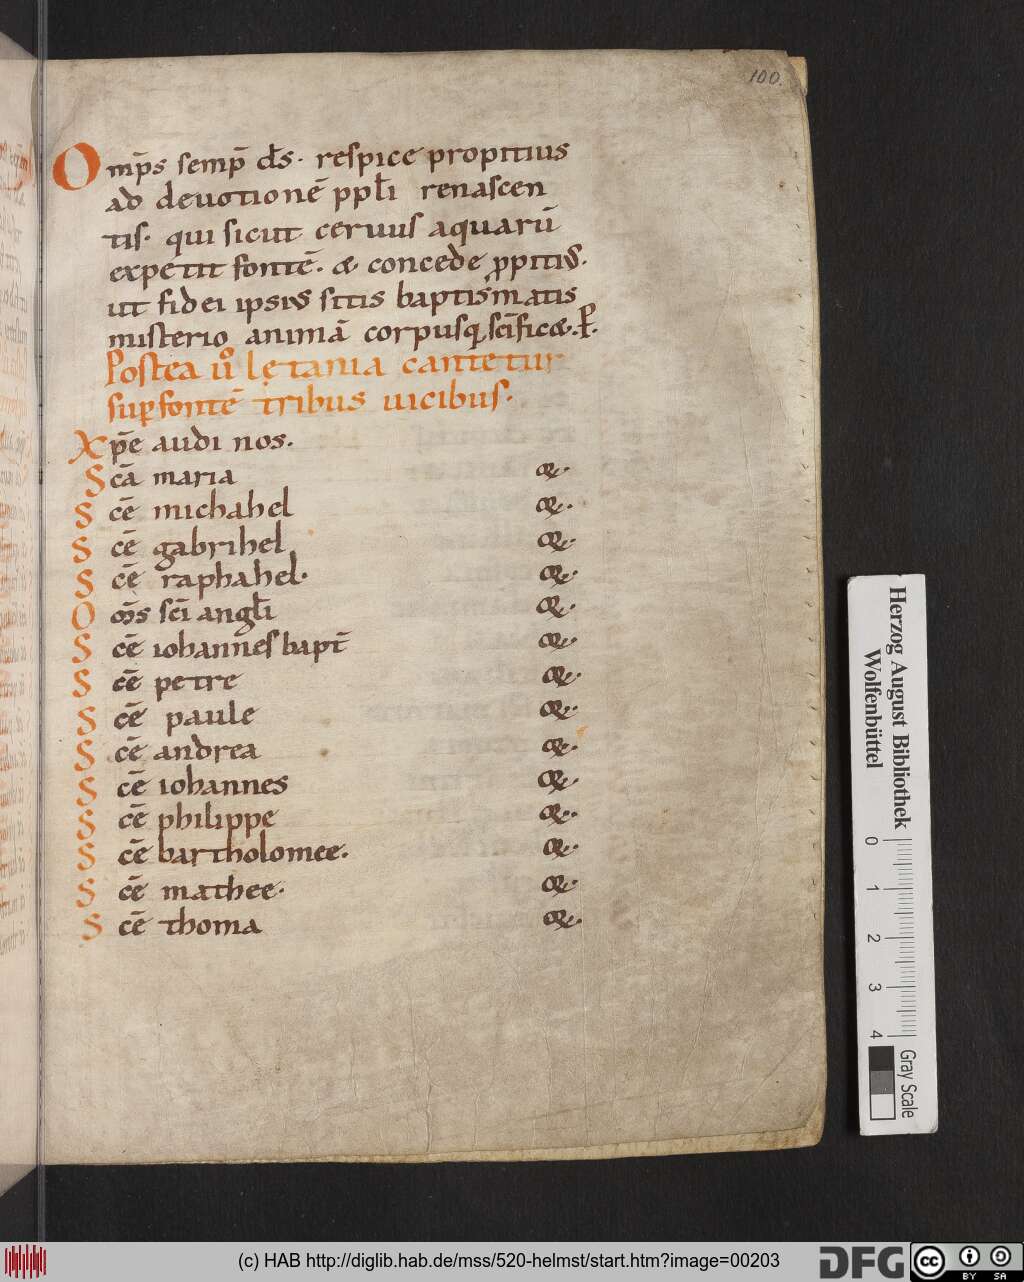 100.
Omp̄s semp̄ d̄s. respice propitius
ad deuotionē ppłi renascen
tis. qui sicut ceruus aquarū
expetit fontē. & concede ꝓpitius.
ut fidei ipsius sitis baptismatis
misterio animā corpusq; scīficæ. P̄.
Postea uº lętania cantetur
suꝑ fontē tribus uicibus.
Xp̄e audi nos.
Scā maria &.
Scē michahel &.
Scē gabrihel &.
Scē raphahel. &.
Om̄s scī angłi &.
Scē iohannes bapt̄ &.
Scē petre &.
Scē paule &.
Scē andrea &.
Scē iohannes &.
Scē philippe &.
Scē bartholomee. &.
Scē mathee. &.
Scē thoma &.
Herzog August Bibliothek
Wolfenbüttel
0 1 2 3 4
Gray Scale
(c) HAB http://diglib.hab.de/mss/520-helmst/start.htm?image=00203
DFG
cc BY SA